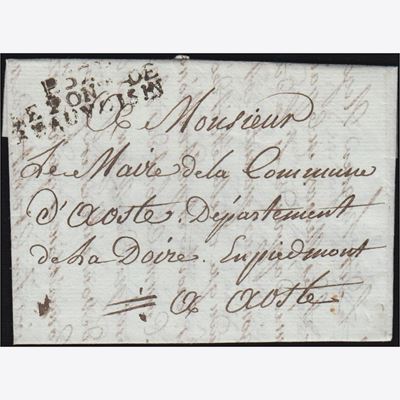 DE
PON
BEAUVOISIN
A Monsieur
Le Maire de la Commune
D'Aoste, Département
de La Doire. En piedmont
a Aoste